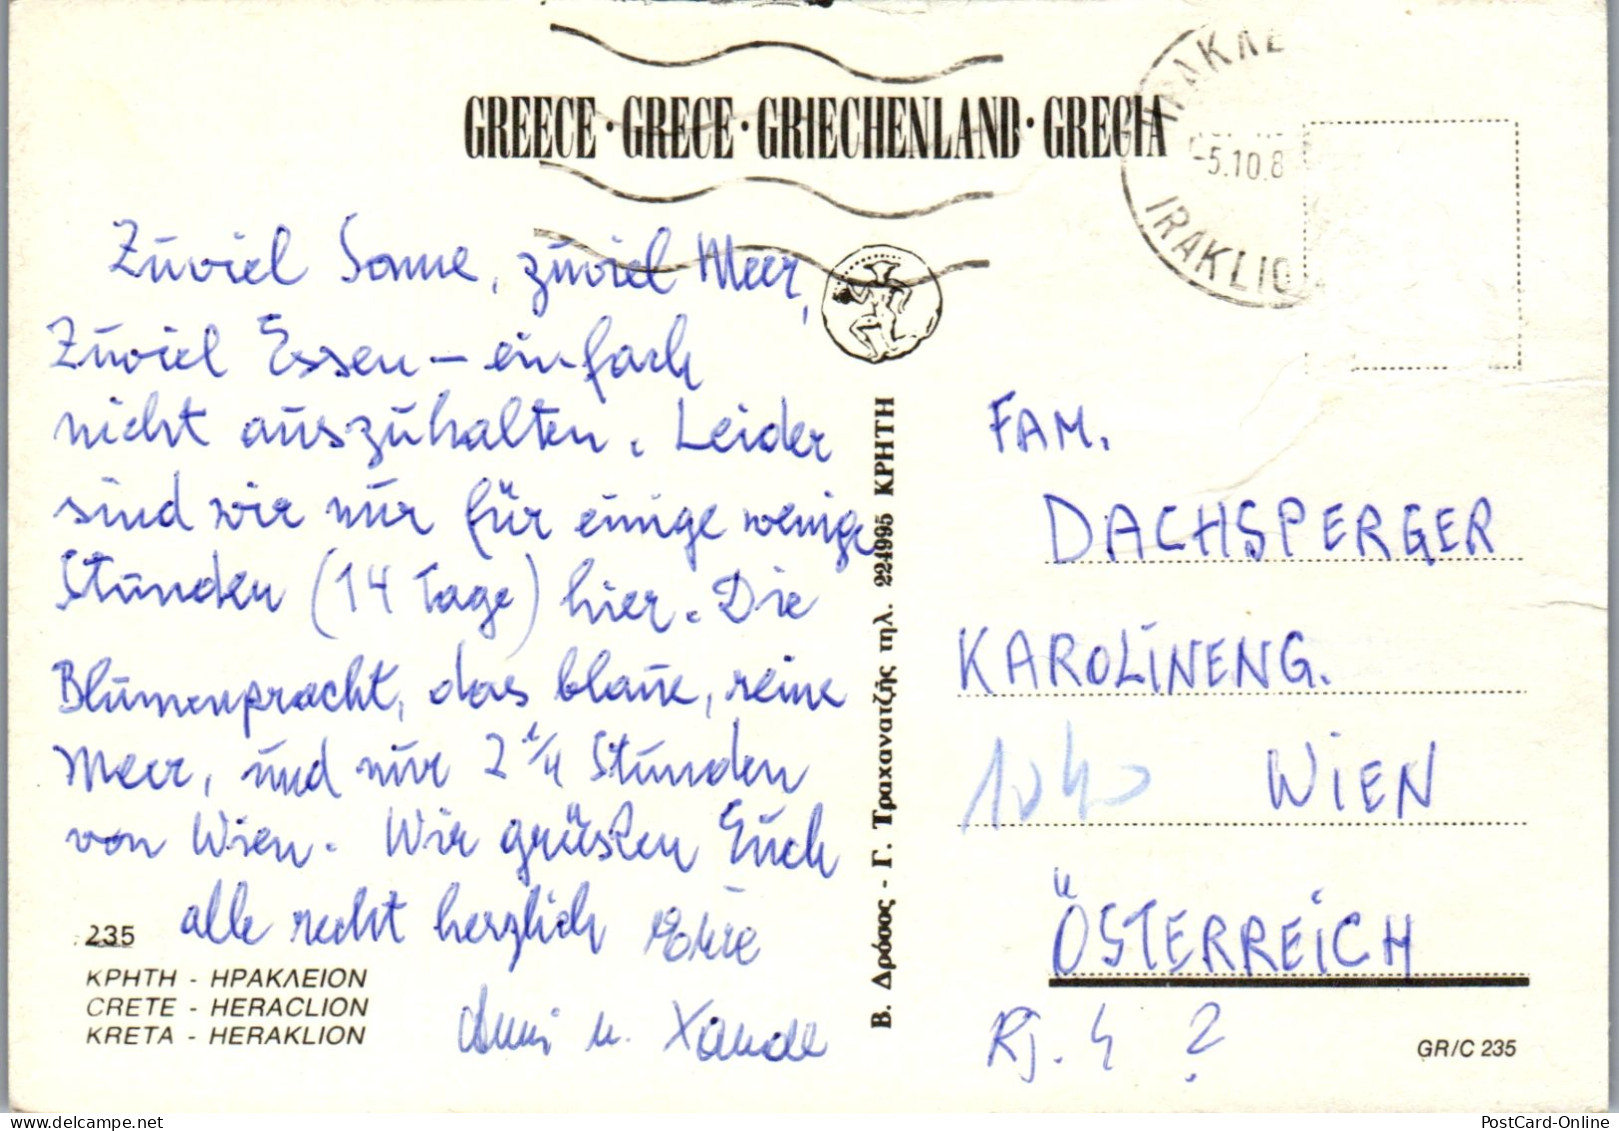 GREECE · GRECE · GRIECHENLAND · GRECIA
ΗΡΑΚΛΕ
-5.10.8
IRAKLIO
Zuviel Sonne, zuviel Meer,
Zuviel Essen – einfach
nicht auszuhalten. Leider
sind wir nur für einige wenige
Stunden (14 Tage) hier. Die
Blumenpracht, das blaue, reine
Meer, und nur 2 1/4 Stunden
von Wien. Wir grüßen Euch
alle recht herzlich Eure
Anni u.
235
ΚΡΗΤΗ - ΗΡΑΚΛΕΙΟΝ
CRETE - HERACLION
KRETA - HERAKLION
Β. Δρόσος - Γ. Τραχανατζής τηλ. 224995 ΚΡΗΤΗ
FAM.
DACHSPERGER
KAROLINENG.
1040 WIEN
ÖSTERREICH
?
GR/C 235
PostCard-Online